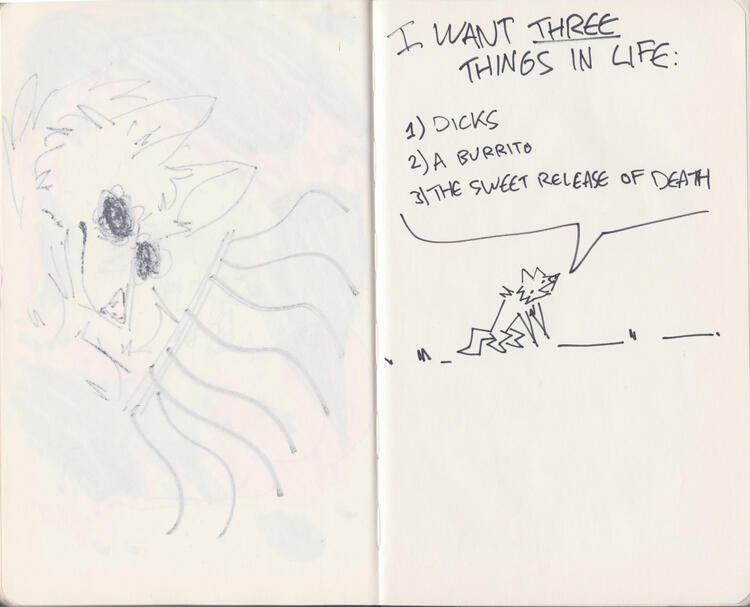 I WANT THREE
THINGS IN LIFE:
1) DICKS
2) A BURRITO
3) THE SWEET RELEASE OF DEATH